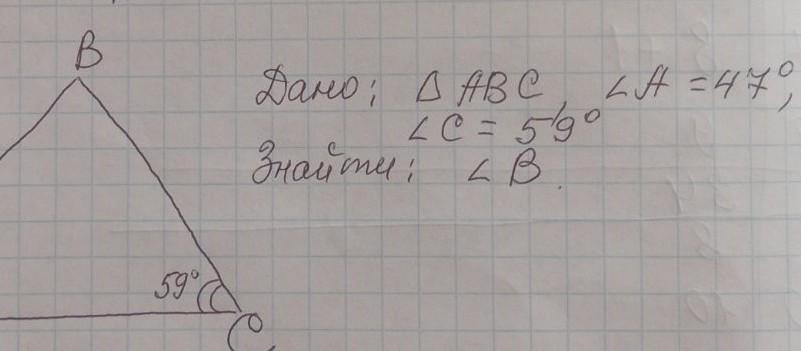 B
Дано; △ ABC, ∠A = 47°,
∠C = 59°
Знайти: ∠B.
59°
C